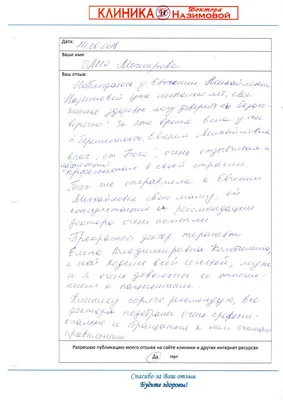 КЛИНИКА Доктора Назимовой
Дата:
Ваше имя:
Ольга
Ваш отзыв:
Наблюдаюсь у Евгении Михайловны
Назимовой уже несколько лет, сво
женское здоровье могу доверить ей безого-
ворочно! За это время вела у нас
Евгения Михайловна
врач "от Бога", очень отзывчивая и
профессионал в своей отрасли.
Так же отправляла к Евгении
Михайловне свою маму, ей
консультация и рекомендации
доктора очень помогли.
Прекрасный доктор терапевт
Елена Владимировна
к ней ходим всей семьей, муж
и я очень довольны ее отноше-
нием к пациентам.
Клинику горячо рекомендую, все
доктора подобраны очень професси-
онально и обращаться к ним считаю
правильным.
Разрешаю публикацию моего отзыва на сайте клиники и других интернет ресурсах
Да Нет
Спасибо за Ваш отзыв.
Будьте здоровы!